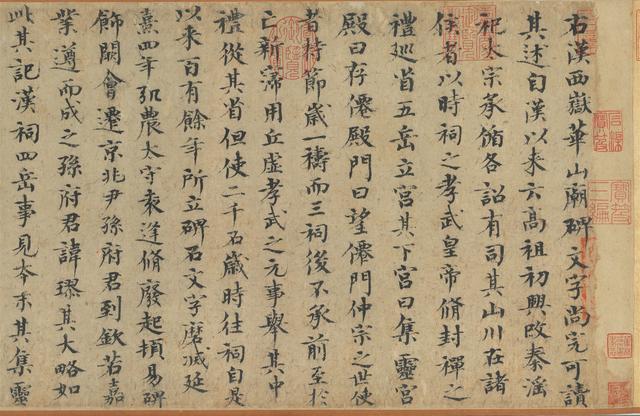 右漢西嶽華山廟碑文字尚完可讀
其述自漢以來云高祖初興改秦淫
祀太宗承循各詔有司其山川在諸
侯者以時祠之孝武皇帝脩封禪之
禮巡省五岳立宮其下宮曰集靈宮
殿曰存僊殿門曰望僊門仲宗之世使
者持節歳一禱而三祠後不承前至於
亡新寖用丘虛孝武之元事舉其中
禮從其省但使二千石歳時往祠自是
以來百有餘年所立碑石文字磨滅延
熹四年弘農太守袁逢脩廢起頓易碑
飾闕會遷京兆尹孫府君到欽若嘉
業遵而成之孫府君諱璆其大略如
此其記漢祠四岳事見本末其集靈